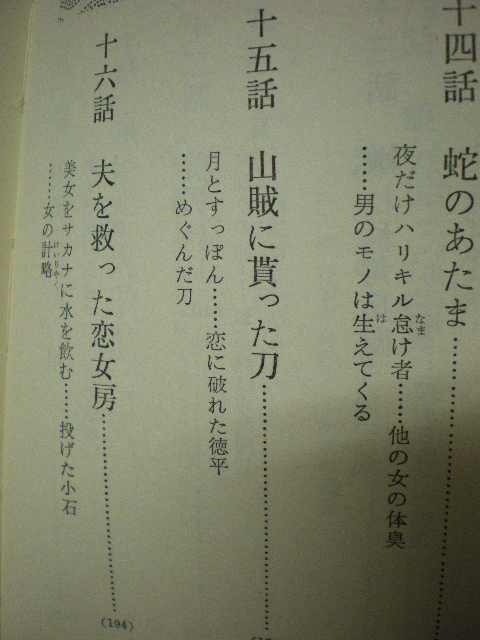 十四話 蛇のあたま……………………
夜だけハリキル怠け者……他の女の体臭
なま
……男のモノは生えてくる
は
十五話 山賊に貰った刀……………………
月とすっぽん……恋に破れた徳平
……めぐんだ刀
十六話 夫を救った恋女房……………………(194)
美女をサカナに水を飲む……投げた小石
……女の計略
けいりやく